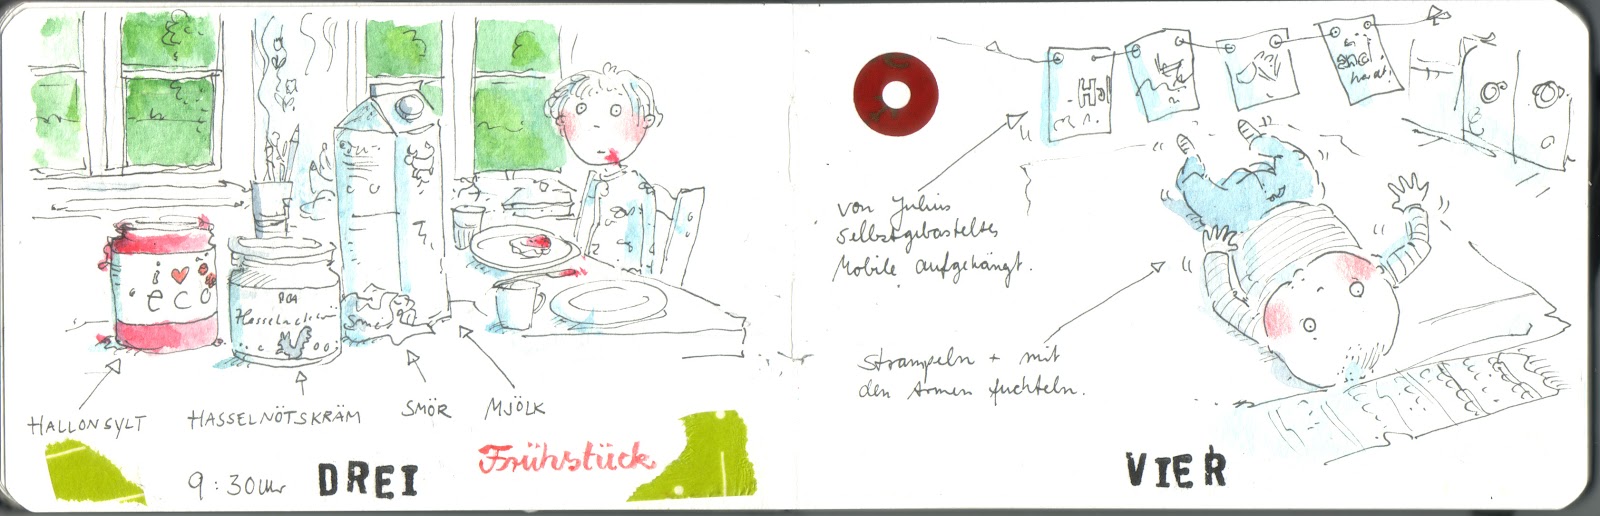 i ♥
eco
Hasselnötskräm
Smör
HALLONSYLT
HASSELNÖTSKRÄM
SMÖR
MJÖLK
9:30 Uhr
DREI
Frühstück
von Julius
selbstgebasteltes
Mobile aufgehängt.
Strampeln + mit
den Armen fuchteln.
VIER